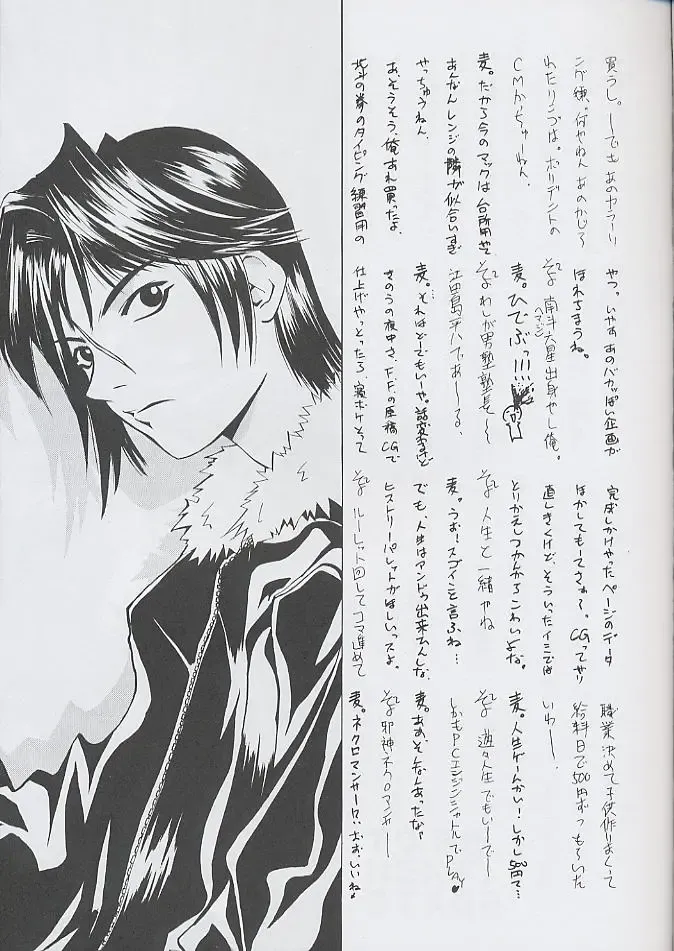 買うし。ーでも あのヤラーリ
ング 練、何やねん あのかじら
れたリンゴは。ポリデントの
CMかっちゅーねん。
麦。だから今のマックは 台所用やて
あんなん レンジの隣が似合いすぎ
やっちゅうねん。
あ、そうそう、俺あれ買ったよ、
北斗の拳のタイピング練習用の
やつ。いやぁ あのバカっぽい企画が
ほれちまうね。
そよ 南斗六星出身やし俺。
麦。ひでぶっ!!!
そよ わしが男塾塾長〜
江田島平八であーーる。
麦。それはどーでもいーや。話変るけど
きのうの夜中さ、F.F.の原稿CGで
仕上げやっとったら、寝ボケとって
完成しかけやったページのデータ
ほかしてもーてさぁ〜。CGってやり
直しきくけど、そういったイミでは
とりかえしつかんからこわいよな。
そよ 人生と一緒やね
麦。うお!スゴイこと言ふね…
でも、人生はアンドゥ出来ひんしな、
ヒストリーパレットがほしいっスよ。
そよ ルーレット回してコマ進めて
職業決めて子供作りまくって
給料日で500円ずつもらいた
いわー。
麦。人生ゲームかい!しかし500円て…
そよ 遊々人生でもいーでー
しかもPCエンジンシャトルでPlay♥
麦。あぁそんなんあったなァ
そよ 邪神ネクロマンサー
麦。ネクロマンサー!?おお、いいね♪